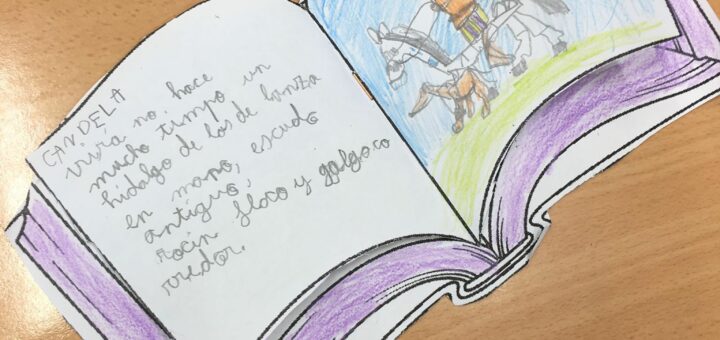 CANDELA
vivia no hace
mucho tiempo un
hidalgo de los de lanza
en mano, escudo
antiguo,
rocín flaco y galgo co
rredor.